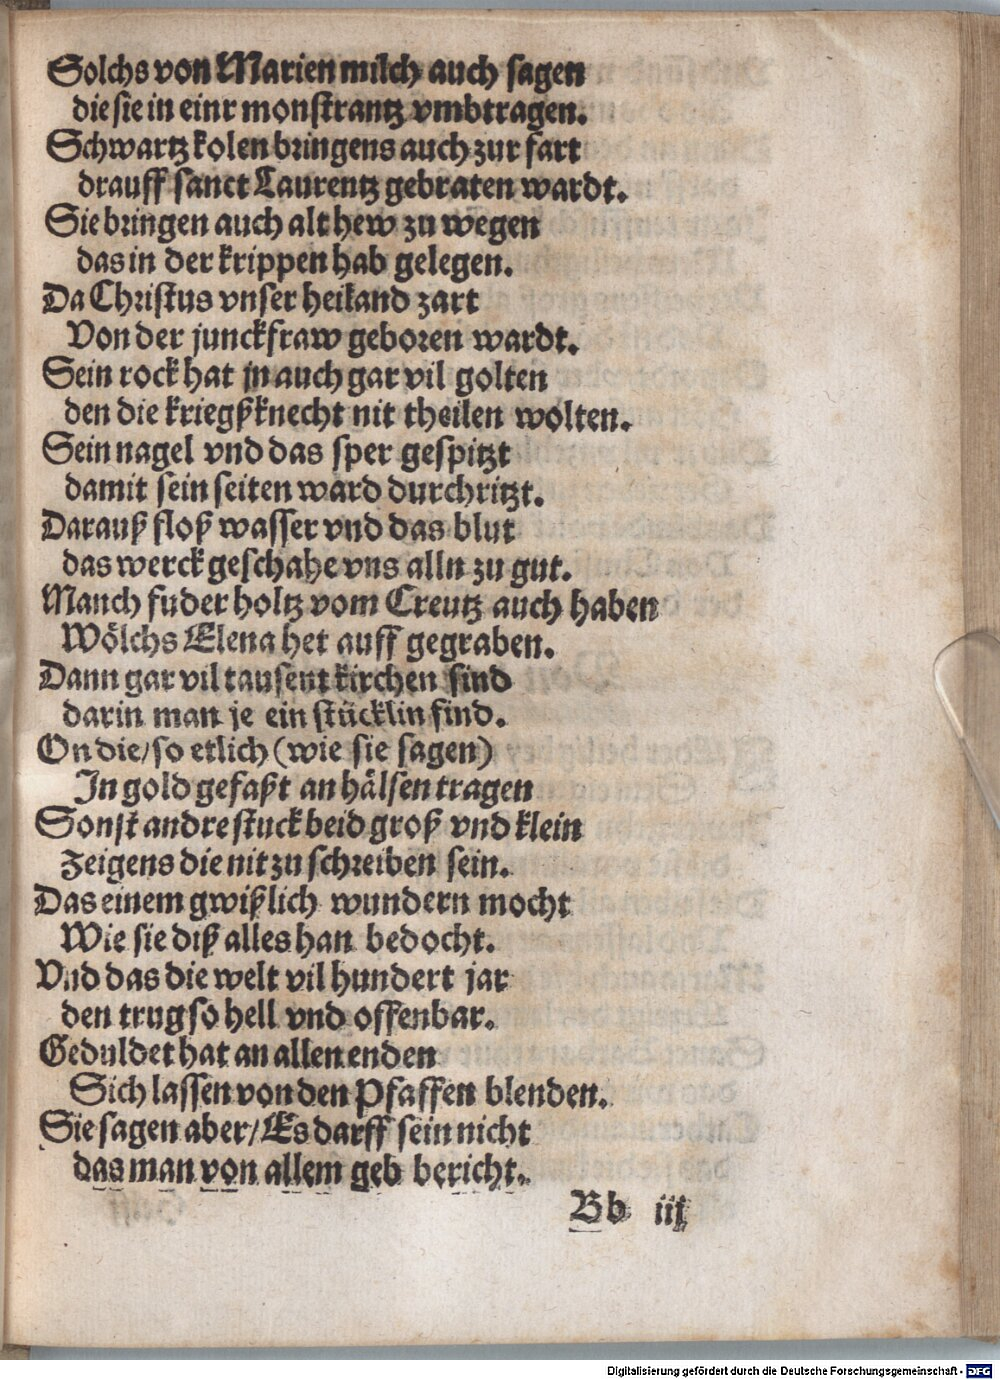 Solchs von Marien milch auch sagen
die sie in einr monstrantz vmbtragen.
Schwartz kolen bringens auch zur fart
drauff sanct Laurentz gebraten wardt.
Sie bringen auch alt hew zu wegen
das in der krippen hab gelegen.
Da Christus vnser heiland zart
Von der junckfraw geboren wardt.
Sein rock hat jn auch gar vil golten
den die kriegßknecht nit theilen wolten.
Sein nagel vnd das sper gespitzt
damit sein seiten ward durchritzt.
Darauß floß wasser vnd das blut
das werck geschahe vns alln zu gut.
Manch fuder holtz vom Creutz auch haben
Wölchs Elena het auff gegraben.
Dann gar vil tausent kirchen sind
darin man je ein stücklin find.
On die/ so etlich (wie sie sagen)
In gold gefaßt an hälsen tragen
Sonst andre stuck beid groß vnd klein
zeigens die nit zu schreiben sein.
Das einem gwißlich wundern mocht
Wie sie diß alles han bedocht.
Vnd das die welt vil hundert jar
den trug so hell vnd offenbar.
Geduldet hat an allen enden
Sich lassen von den Pfaffen blenden.
Sie sagen aber/ Es darff sein nicht
das man von allem geb bericht.
Bb iij
Digitalisierung gefördert durch die Deutsche Forschungsgemeinschaft - DFG